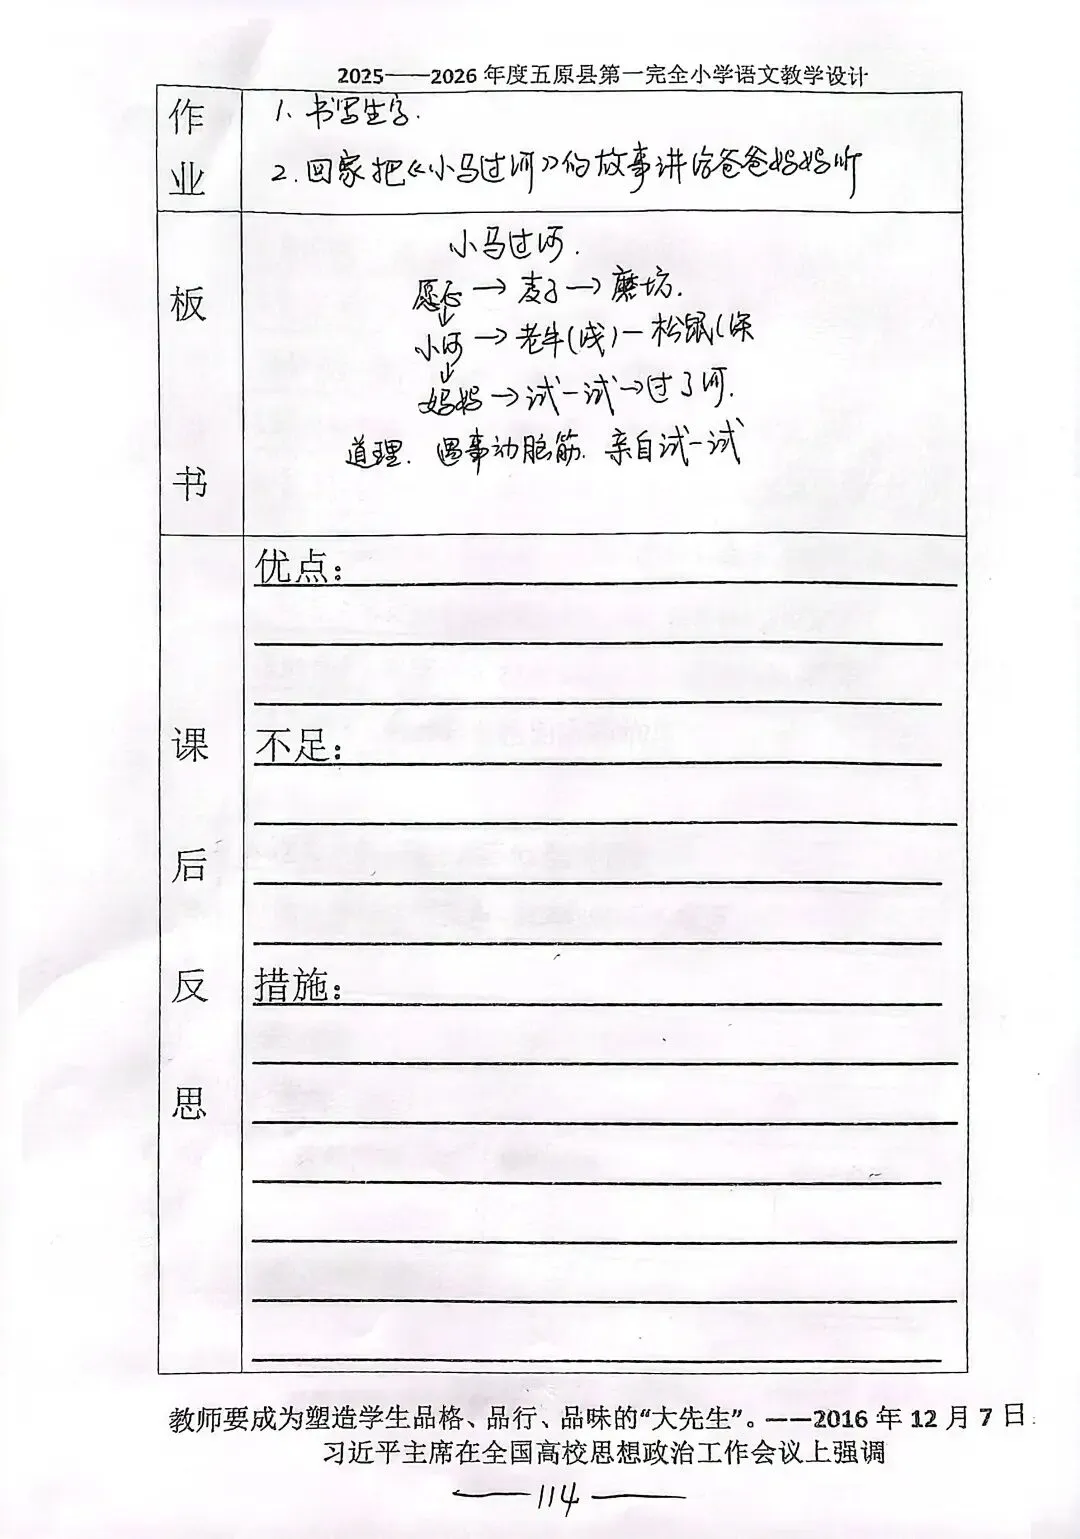 2025——2026 年度五原县第一完全小学语文教学设计
作业
1、书写生字.
2.回家把《小马过河》的故事讲给爸爸妈妈听
板书
小马过河.
愿意→麦子→磨坊.
↓
小河→老牛(浅)—松鼠(深
↓
妈妈→试一试→过了河.
道理. 遇事动脑筋. 亲自试一试
课后反思
优点：
不足：
措施：
教师要成为塑造学生品格、品行、品味的“大先生”。——2016 年 12 月 7 日
习近平主席在全国高校思想政治工作会议上强调
— 114 —